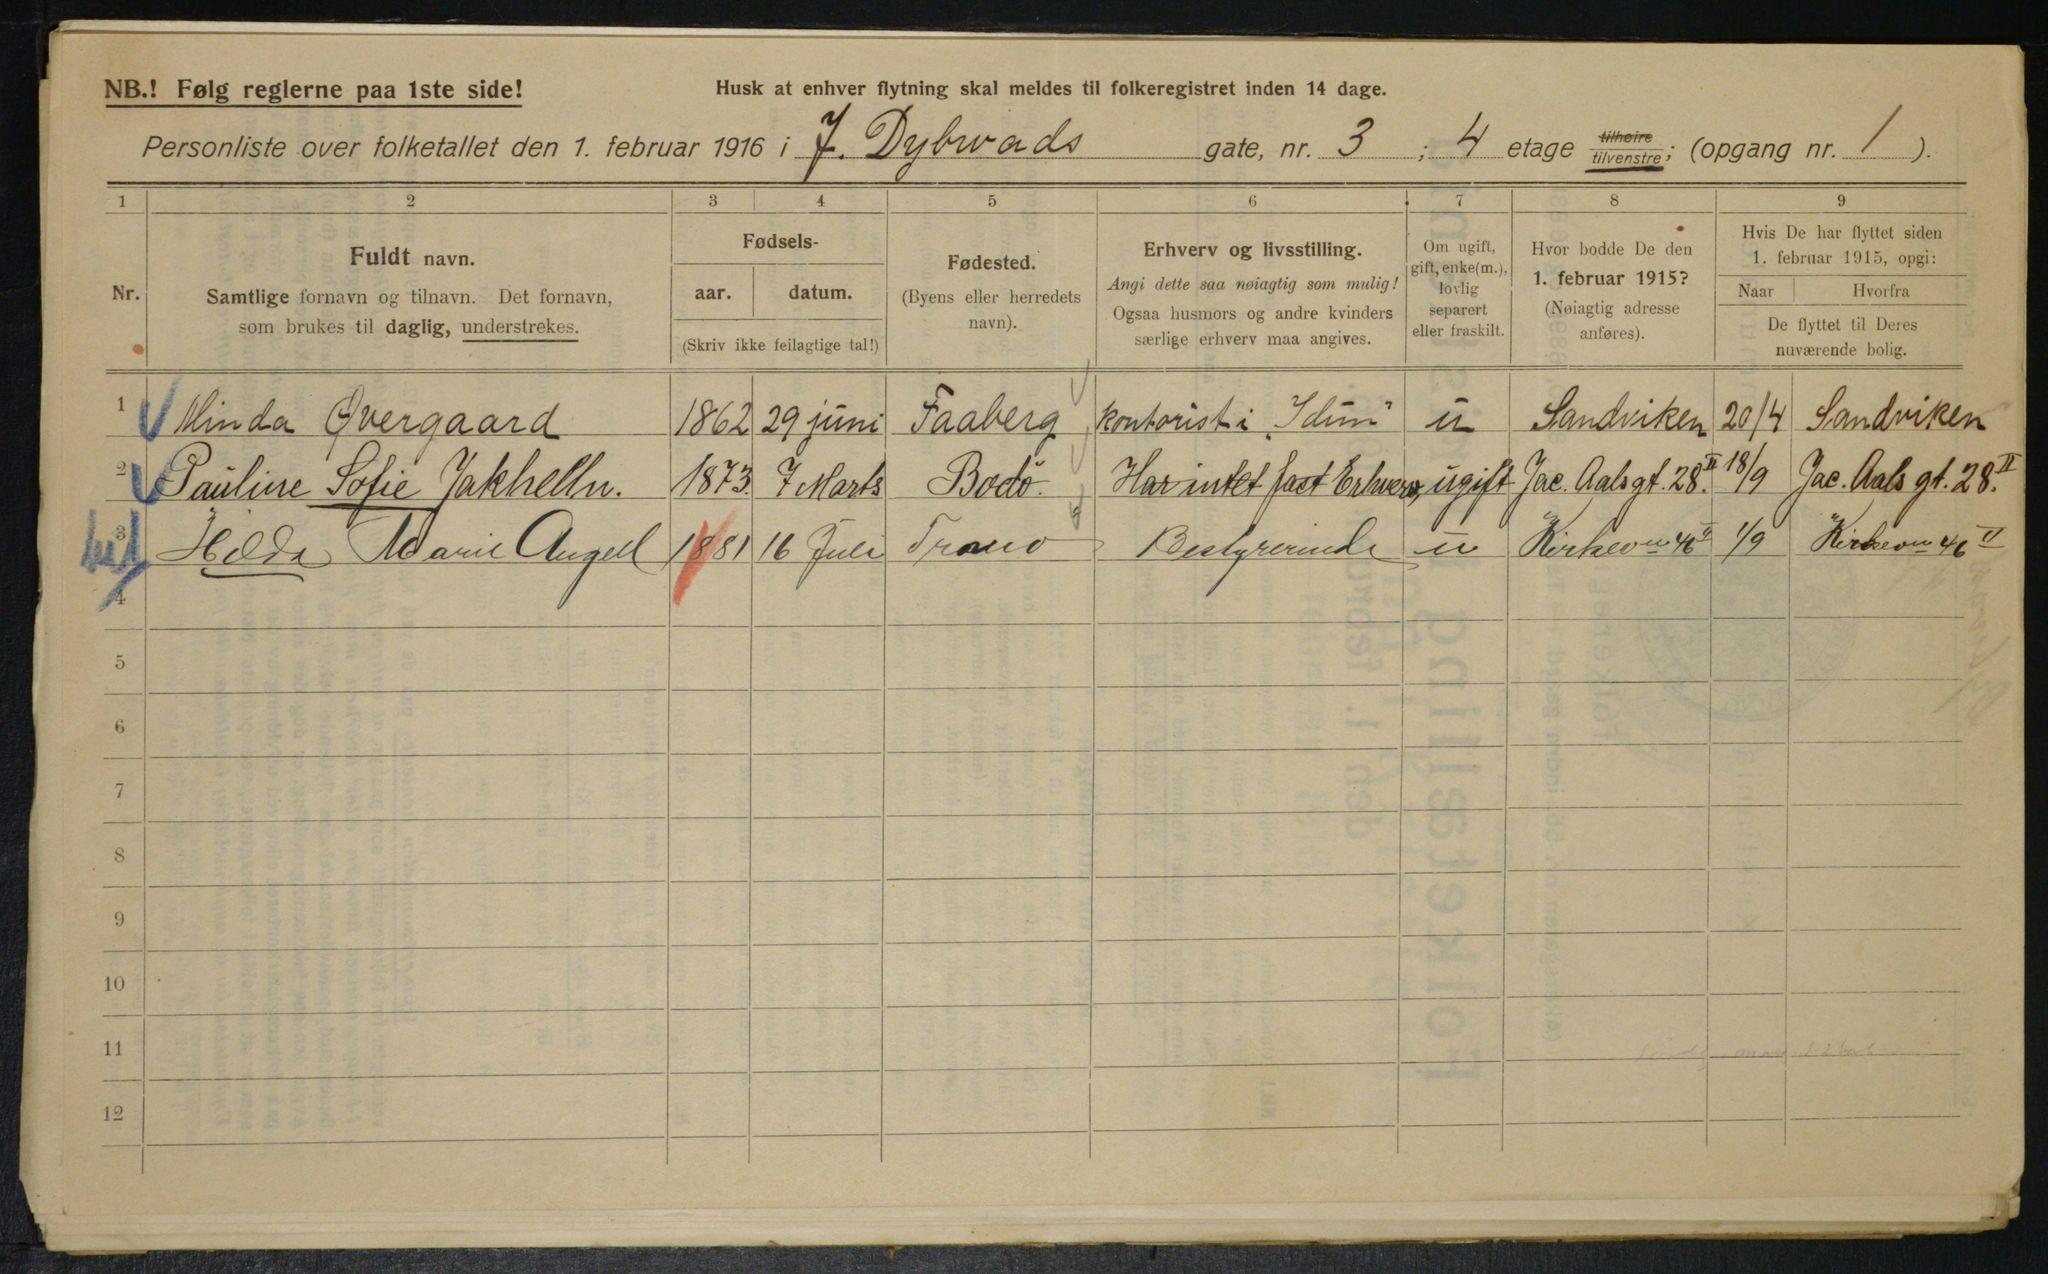 NB.! Følg reglerne paa 1ste side!
Husk at enhver flytning skal meldes til folkeregistret inden 14 dage.
Personliste over folketallet den 1. februar 1916 i J. Dybwads gate, nr. 3; 4 etage tilhøire tilvenstre; (opgang nr. 1).
1 2 3 4 5 6 7 8 9
Nr.
Fuldt navn.
Samtlige fornavn og tilnavn. Det fornavn,
som brukes til daglig, understrekes.
Fødsels-
aar. datum.
(Skriv ikke feilagtige tal!)
Fødested.
(Byens eller herredets
navn).
Erhverv og livsstilling.
Angi dette saa nøiagtig som mulig!
Ogsaa husmors og andre kvinders
særlige erhverv maa angives.
Om ugift,
gift, enke(m.),
lovlig
separert
eller fraskilt.
Hvor bodde De den
1. februar 1915?
(Nøiagtig adresse
anføres).
Hvis De har flyttet siden
1. februar 1915, opgi:
Naar Hvorfra
De flyttet til Deres
nuværende bolig.
1 Minda Øvergaard 1862 29 juni Faaberg kontorist i „Idun" u Sandviken 20/4 Sandviken
2 Pauline Sofie Jakhelln. 1873. 7 Marts Bodö. Har intet fast Erhverv, ugift Jac. Aals gt. 28.II 18/9 Jac. Aals gt. 28.II
3 Hilda Marie Angell 1881 16 Juli Tranø Bestyrerinde u Kirkevn 46 II 1/9 Kirkevn 46 II
4
5
6
7
8
9
10
11
12